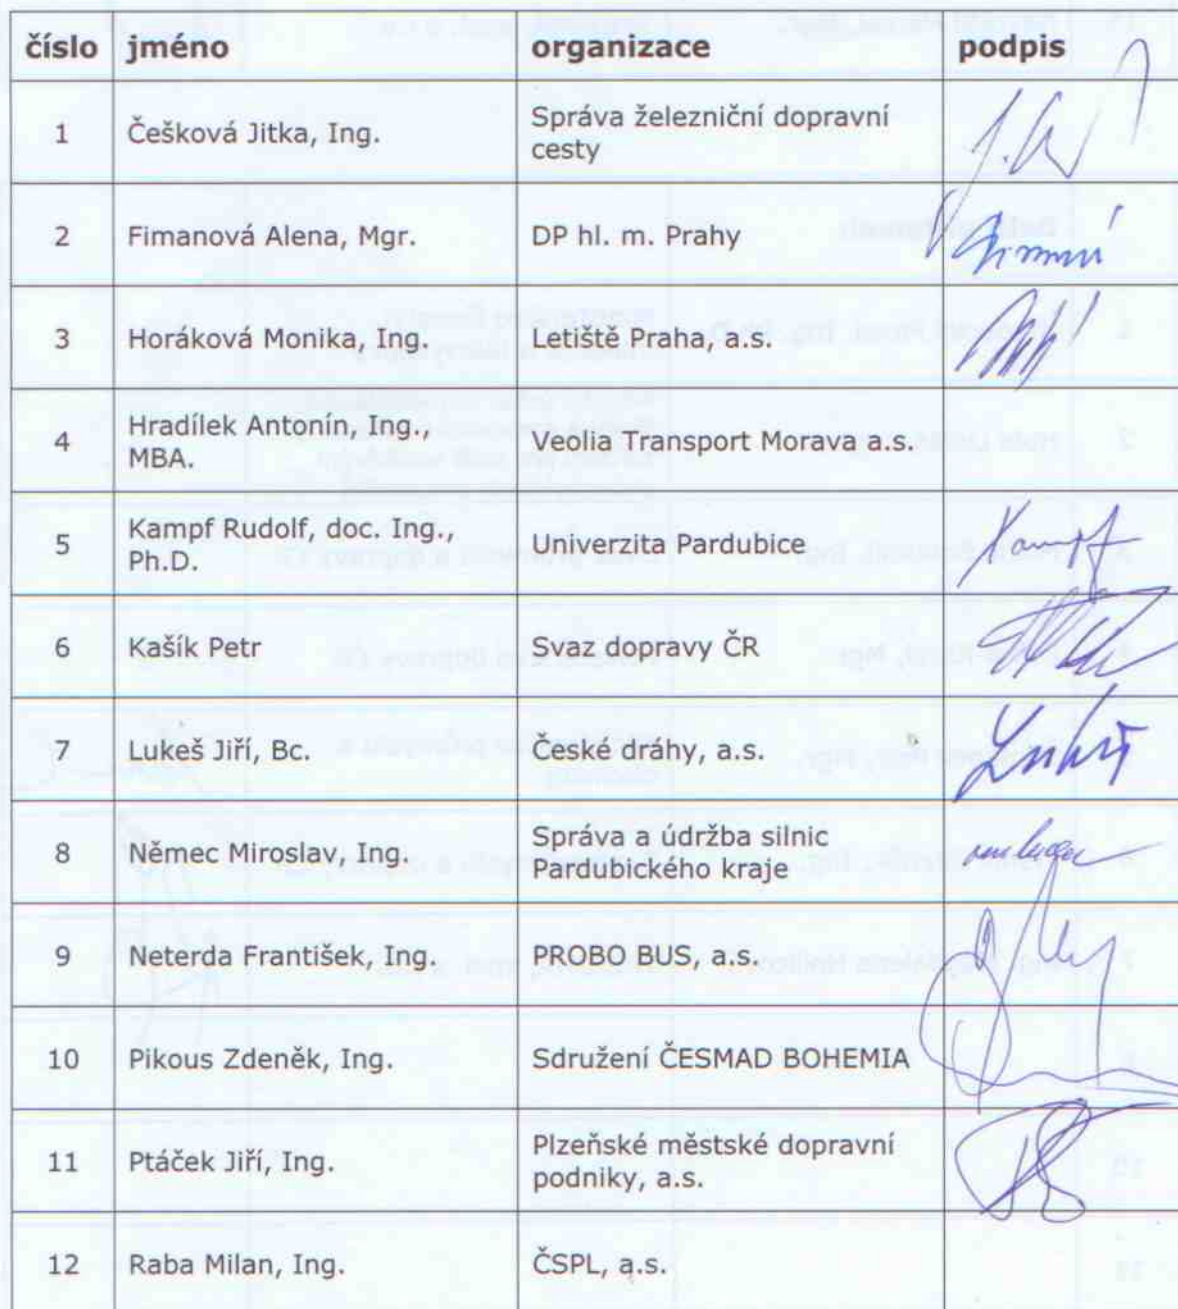 číslo jméno organizace podpis
1 Češková Jitka, Ing. Správa železniční dopravní
cesty
2 Fimanová Alena, Mgr. DP hl. m. Prahy
3 Horáková Monika, Ing. Letiště Praha, a.s.
4 Hradílek Antonín, Ing.,
MBA. Veolia Transport Morava a.s.
5 Kampf Rudolf, doc. Ing.,
Ph.D. Univerzita Pardubice
6 Kašík Petr Svaz dopravy ČR
7 Lukeš Jiří, Bc. České dráhy, a.s.
8 Němec Miroslav, Ing. Správa a údržba silnic
Pardubického kraje
9 Neterda František, Ing. PROBO BUS, a.s.
10 Pikous Zdeněk, Ing. Sdružení ČESMAD BOHEMIA
11 Ptáček Jiří, Ing. Plzeňské městské dopravní
podniky, a.s.
12 Raba Milan, Ing. ČSPL, a.s.